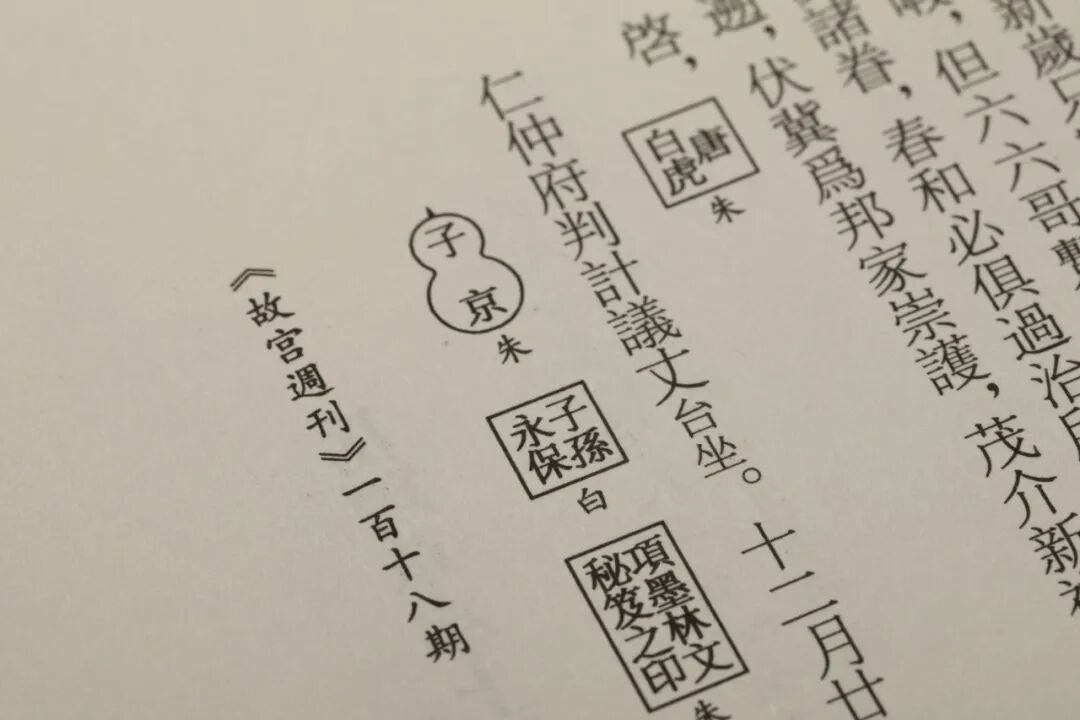 新歲只
但六六哥暫
諸眷，春和必俱過治
邇，伏冀爲邦家崇護，茂介新
啓，
唐白虎
朱
仁仲府判計議丈台坐。十二月廿
子京
朱
子孫永保
白
項墨林文秘笈之印
朱
《故宮週刊》一百十八期